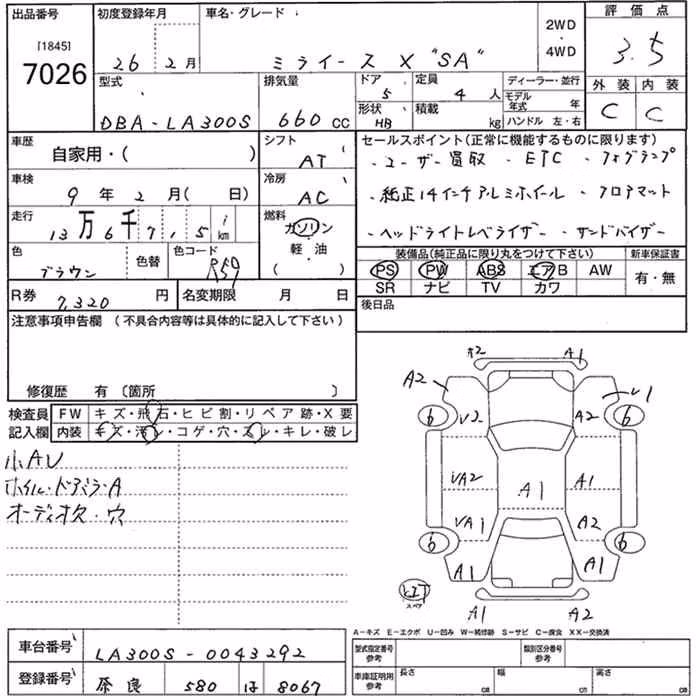 出品番号 初度登録年月 車名・グレード 2WD・4WD 評価点
[1845]
7026
26 2月 ミライース X "SA" 3.5
型式 排気量 ドア 定員 ディーラー・並行 外装 内装
DBA-LA300S 660 CC 5 4 人 モデル年式 年 C C
形状 HB 積載 kg ハンドル 左・右
車歴 自家用・( ) シフト AT
セールスポイント(正常に機能するものに限ります)
・ユーザー買取 ・ETC ・フォグランプ
・純正14インチアルミホイール ・フロアマット
・ヘッドライトレベライザー ・サンドバイザー
車検 9年 2月( 日) 冷房 AC
走行 13万 6千 7 1 5 km 燃料 ガソリン・軽・油 ( )
色 ブラウン 色替 色コード R59
装備品(純正品に限り丸をつけて下さい) 新車保証書
PS PW ABS エアB AW 有・無
SR ナビ TV カワ
R券 7,320 円 名変期限 月 日 後日品
注意事項申告欄 (不具合内容等は具体的に記入して下さい)
修復歴 有〔箇所 〕
検査員 FW キズ・飛石・ヒビ割・リペア跡・X要
記入欄 内装 キズ・汚レ・コゲ・穴・スレ・キレ・破レ
小AU
ホイル・ドアバラ・A
オーディオ欠・穴
A2 A1
A2
6 V2 A2 6
VA2 A1
A1
VA1 A2
6 6
A1 A1
スペア
A1 A2
A-キズ E-エクボ U-凹み W-補修跡 S-サビ C-腐食 XX-交換済
車台番号 LA300S-0043292
型式指定番号 参考 類別区分番号 参考
登録番号 奈良 580 ほ 8067
車庫証明用 参考 長さ cm 幅 cm 高さ cm